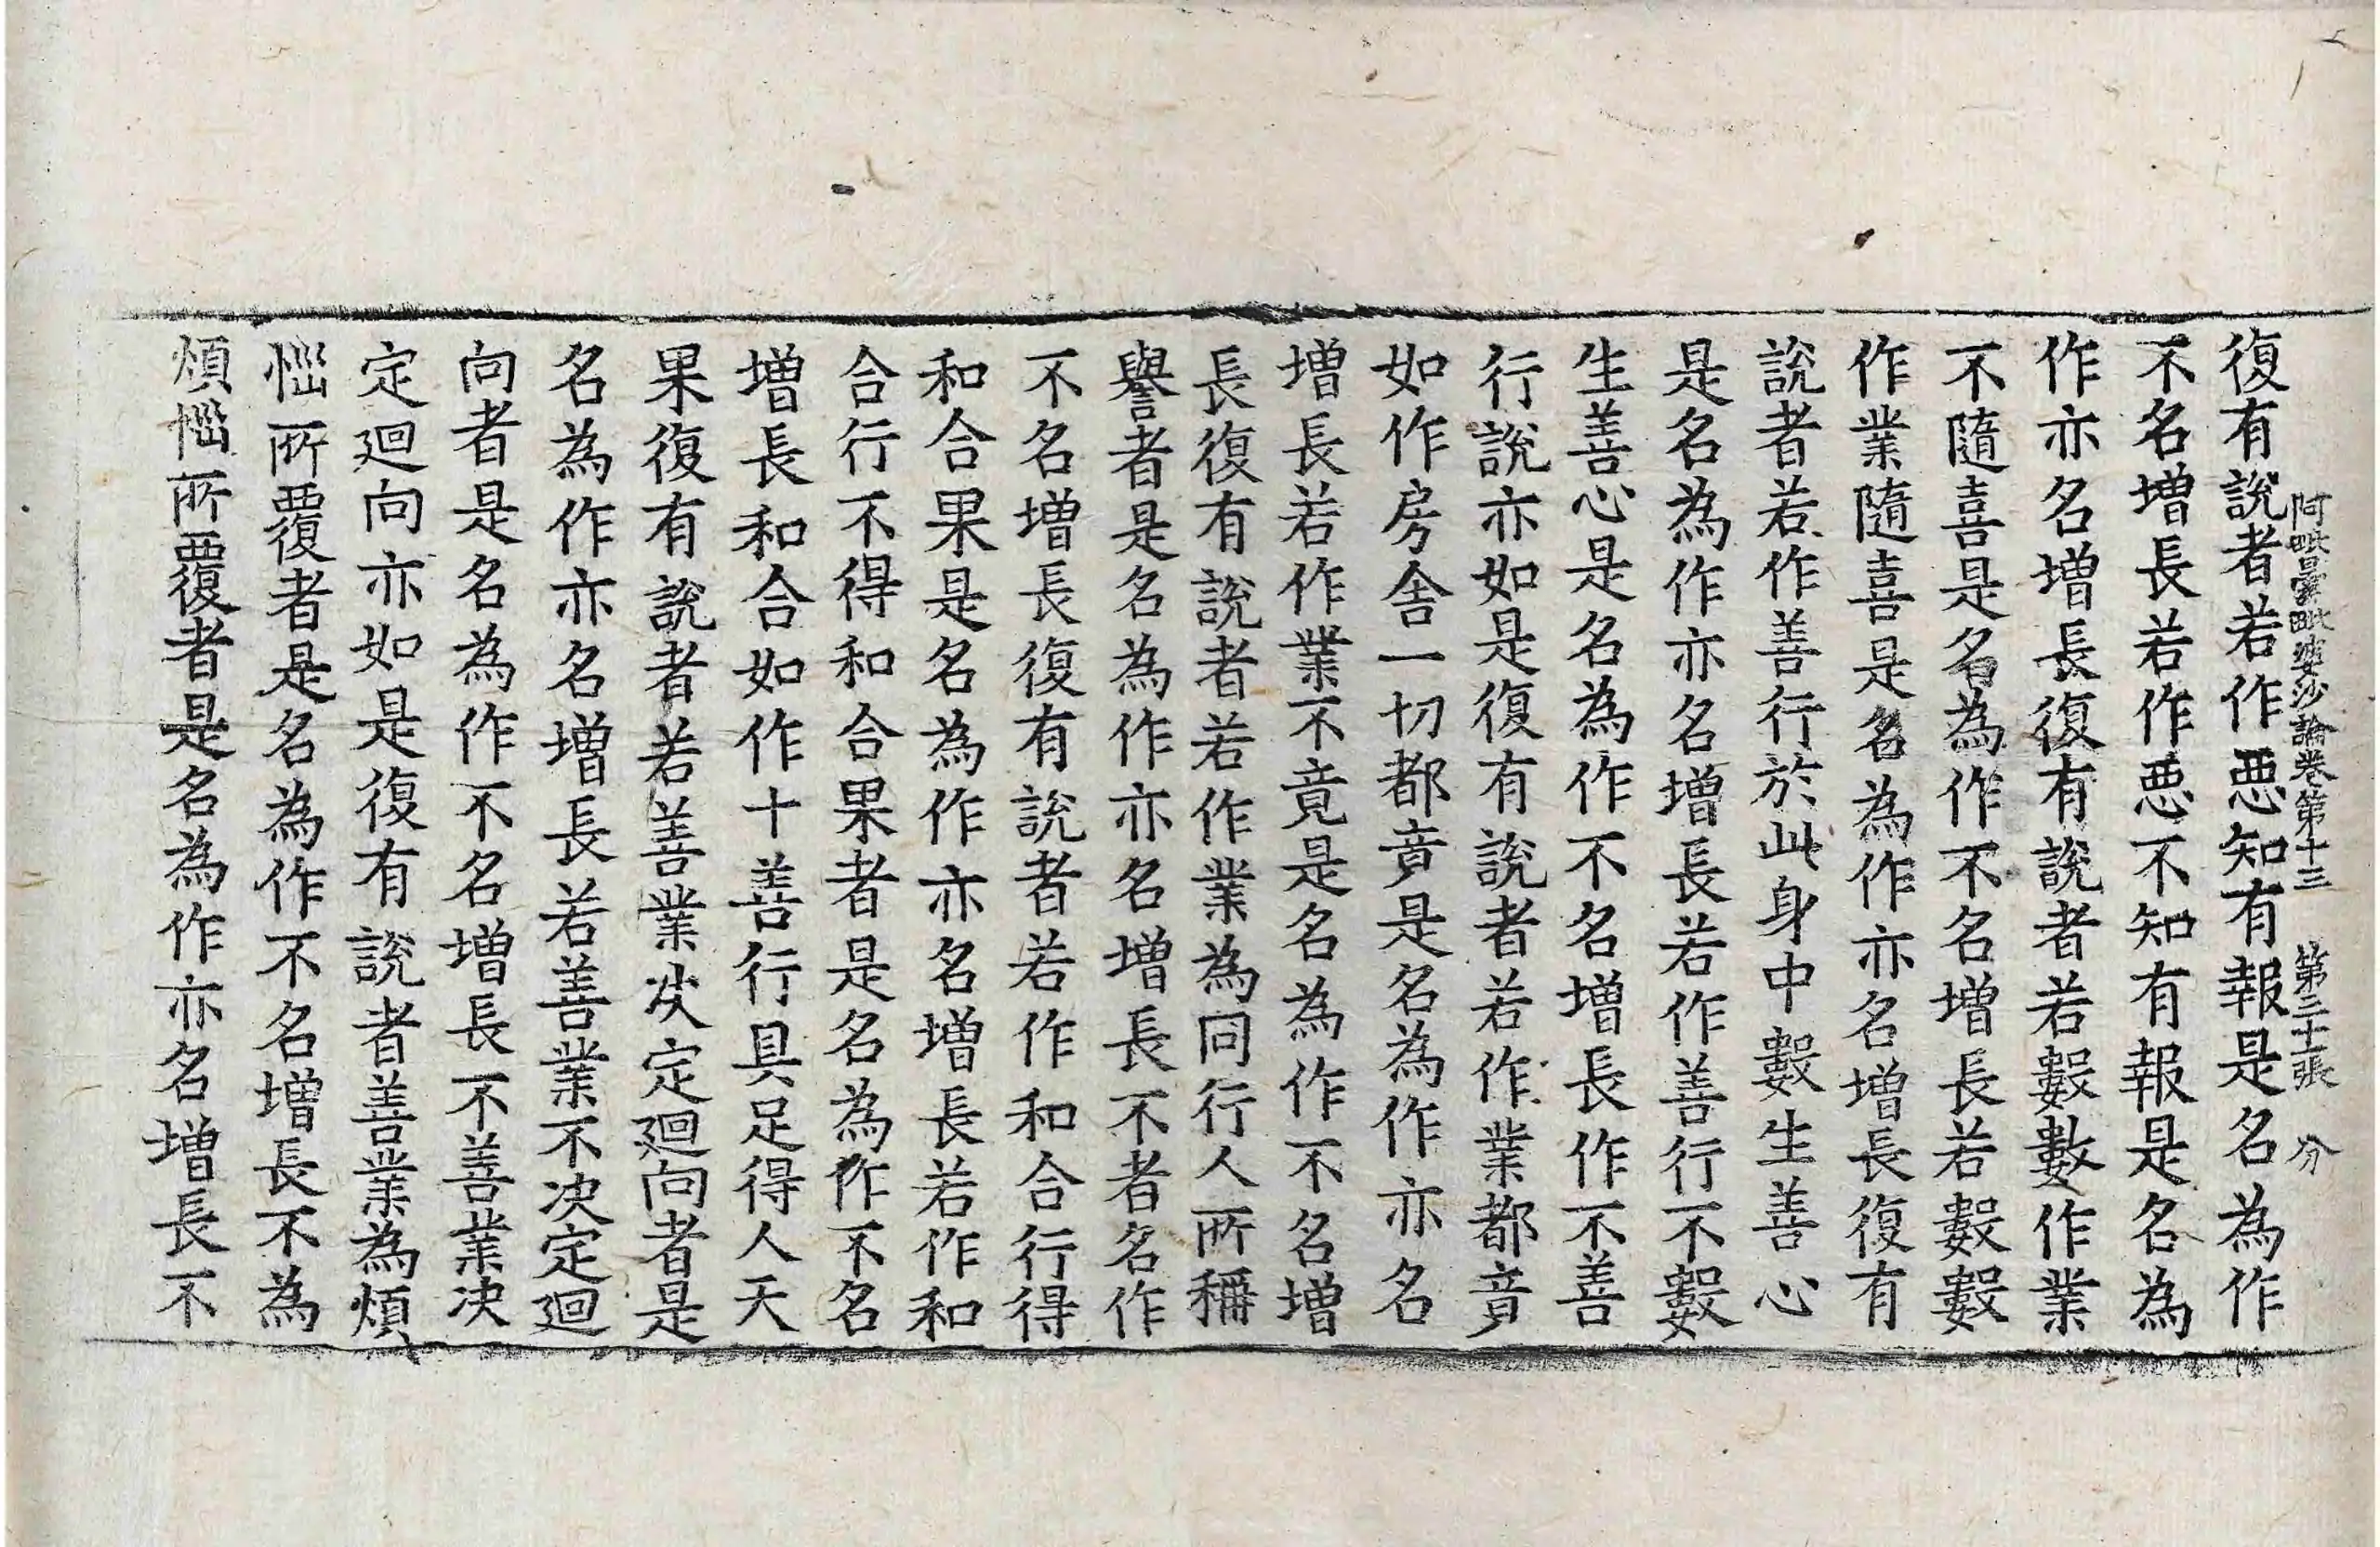 阿毗曇毗婆沙論卷第十三 第三十張 分
復有說者若作惡知有報是名為作
不名增長若作惡不知有報是名為
作亦名增長復有說者若數數作業
不隨喜是名為作不名增長若數數
作業隨喜是名為作亦名增長復有
說者若作善行於此身中數生善心
是名為作亦名增長若作善行不數
生善心是名為作不名增長作不善
行說亦如是復有說者若作業都竟
如作房舍一切都竟是名為作亦名
增長若作業不竟是名為作不名增
長復有說者若作業為同行人所稱
譽者是名為作亦名增長不者名作
不名增長復有說者若作和合行得
和合果是名為作亦名增長若作和
合行不得和合果者是名為作不名
增長和合如作十善行具足得人天
果復有說者若善業决定迴向者是
名為作亦名增長若善業不决定迴
向者是名為作不名增長不善業决
定迴向亦如是復有說者善業為煩
惱所覆者是名為作不名增長不為
煩惱所覆者是名為作亦名增長不